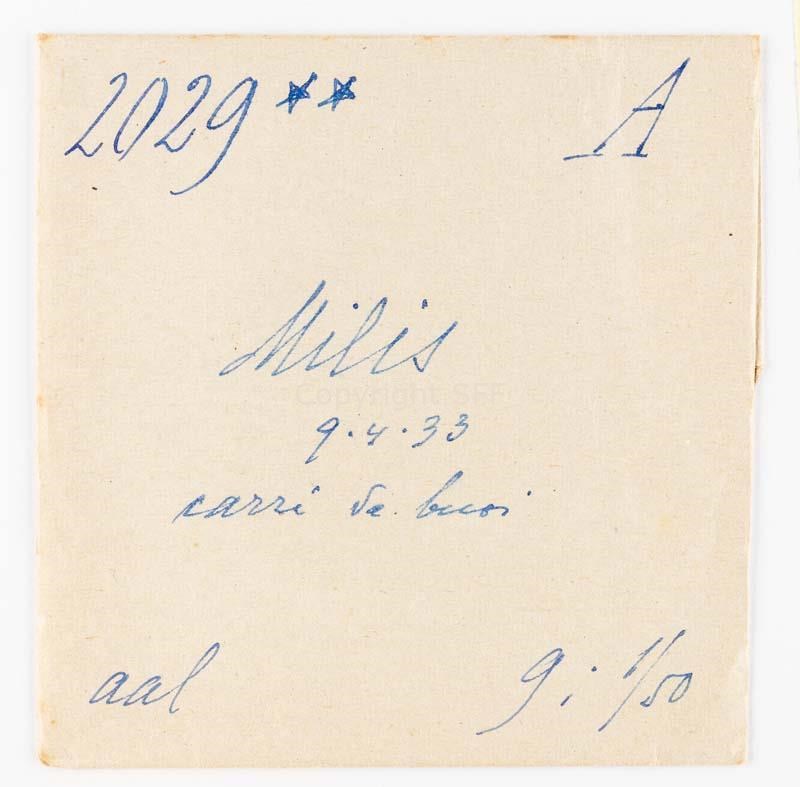 2029 ** A
Milis
Copyright SFF
9.4.33
carri da buoi
aal 9 ; 1/50